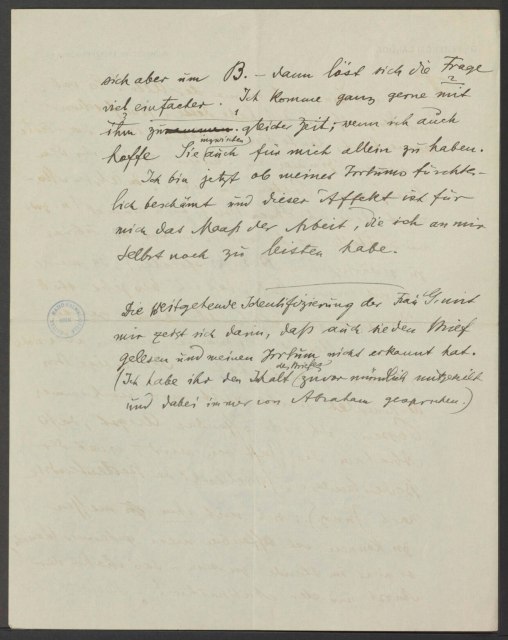 sich aber um B. – dann löst sich die Frage
viel einfacher. Ich komme ganz gerne mit
ihm zu gleicher Zeit, wenn ich auch
hoffe Sie inzwischen auch für mich allein zu haben.
Ich bin jetzt ob meines Irrtums fürchter-
lich beschämt und dieser Affekt ist für
mich das Maaß der Arbeit, die ich an mir
selbst noch zu leisten habe.
Die weitgehende Identifizierung der Frau G. mit
mir zeigt sich darin, daß auch sie den Brief
gelesen und meinen Irrtum nicht erkannt hat.
(Ich habe ihr den Inhalt des Briefes zuvor mündlich mitgeteilt
und dabei immer von Abraham gesprochen.)